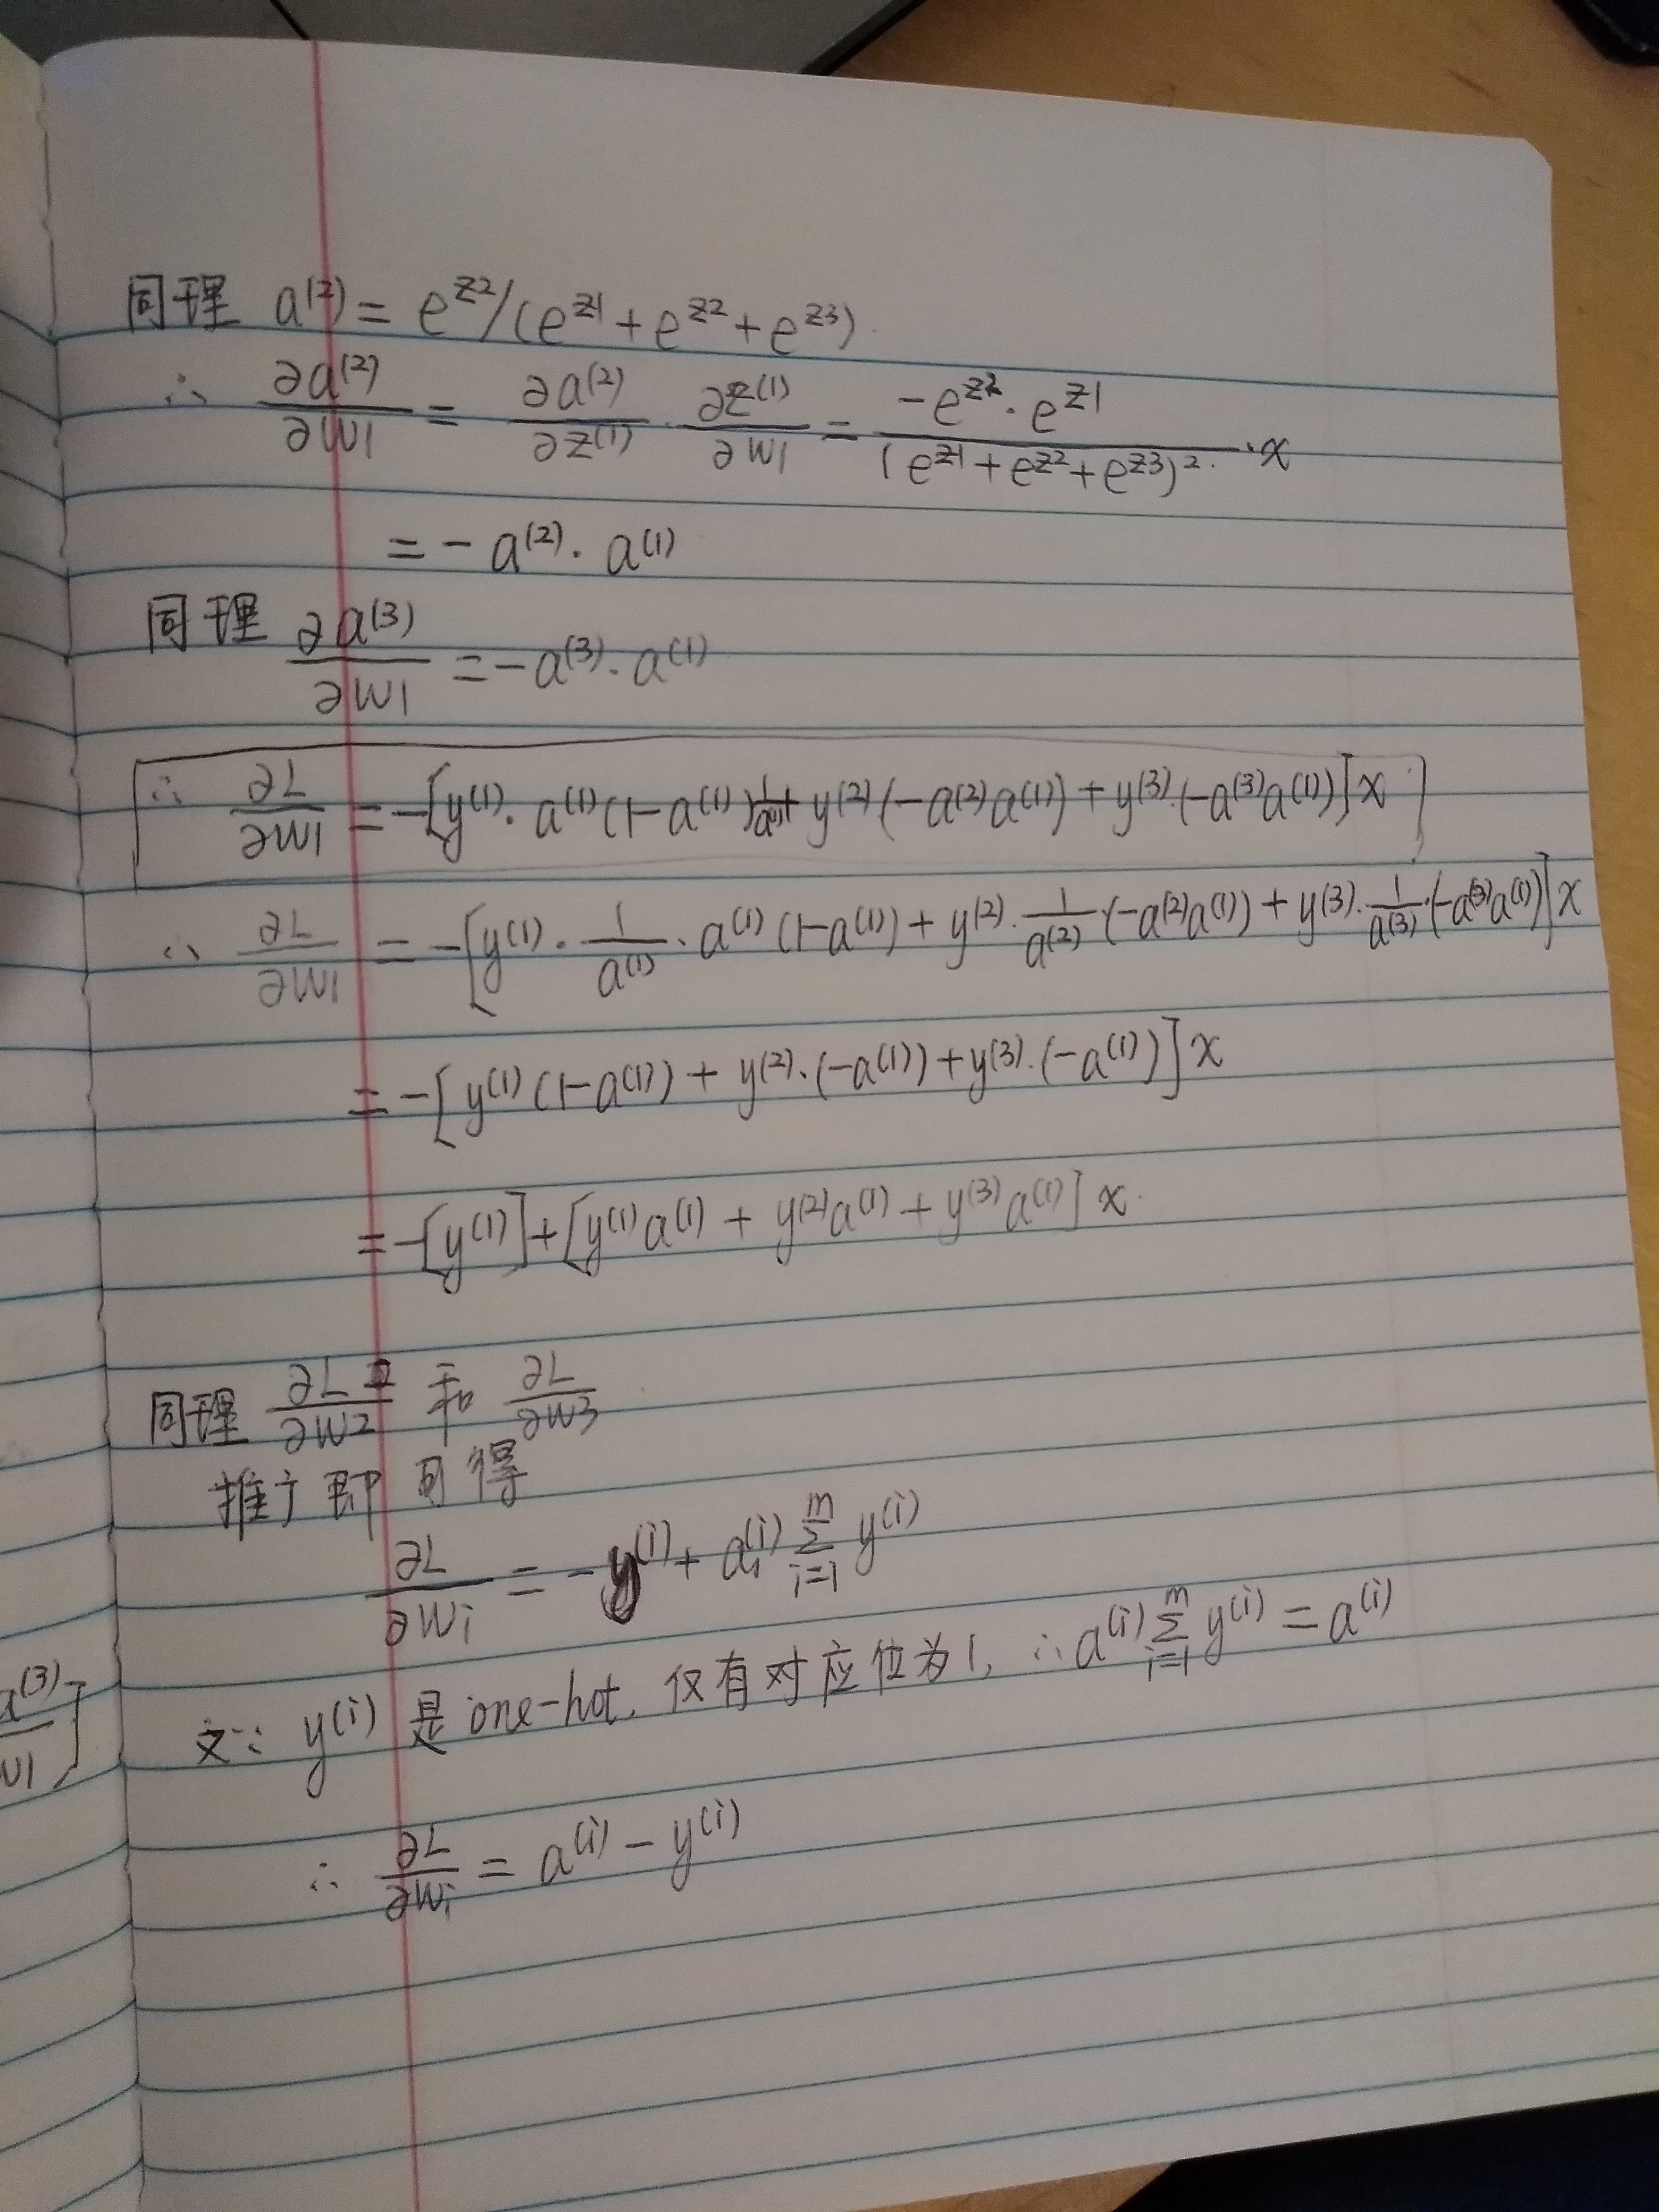 同理 a⁽²⁾ = e^{z2}/(e^{z1} + e^{z2} + e^{z3}).
∴ ∂a⁽²⁾/∂w1 = ∂a⁽²⁾/∂z⁽¹⁾ · ∂z⁽¹⁾/∂w1 = -e^{z2}·e^{z1}/(e^{z1} + e^{z2} + e^{z3})² · x
= -a⁽²⁾· a⁽¹⁾
同理 ∂a⁽³⁾/∂w1 = -a⁽³⁾· a⁽¹⁾
∴ ∂L/∂w1 = -[y⁽¹⁾· a⁽¹⁾(1-a⁽¹⁾) 1/a⁽¹⁾ + y⁽²⁾(-a⁽²⁾a⁽¹⁾) + y⁽³⁾·(-a⁽³⁾a⁽¹⁾)]x
∴ ∂L/∂w1 = -[y⁽¹⁾· 1/a⁽¹⁾ · a⁽¹⁾(1-a⁽¹⁾) + y⁽²⁾· 1/a⁽²⁾ ·(-a⁽²⁾a⁽¹⁾) + y⁽³⁾· 1/a⁽³⁾ ·(-a⁽³⁾a⁽¹⁾)]x
= -[y⁽¹⁾(1-a⁽¹⁾) + y⁽²⁾·(-a⁽¹⁾) + y⁽³⁾·(-a⁽¹⁾)]x
= -[y⁽¹⁾] + [y⁽¹⁾a⁽¹⁾ + y⁽²⁾a⁽¹⁾ + y⁽³⁾a⁽¹⁾]x.
同理 ∂L/∂w2 和 ∂L/∂w3
推广即可得
∂L/∂wi = -y⁽ⁱ⁾ + a⁽ⁱ⁾ Σ_{i=1}^{m} y⁽ⁱ⁾
又∵ y⁽ⁱ⁾ 是 one-hot, 仅有对应位为1, ∴ a⁽ⁱ⁾ Σ_{i=1}^{m} y⁽ⁱ⁾ = a⁽ⁱ⁾
∴ ∂L/∂wi = a⁽ⁱ⁾ - y⁽ⁱ⁾
a⁽³⁾
w1 ]